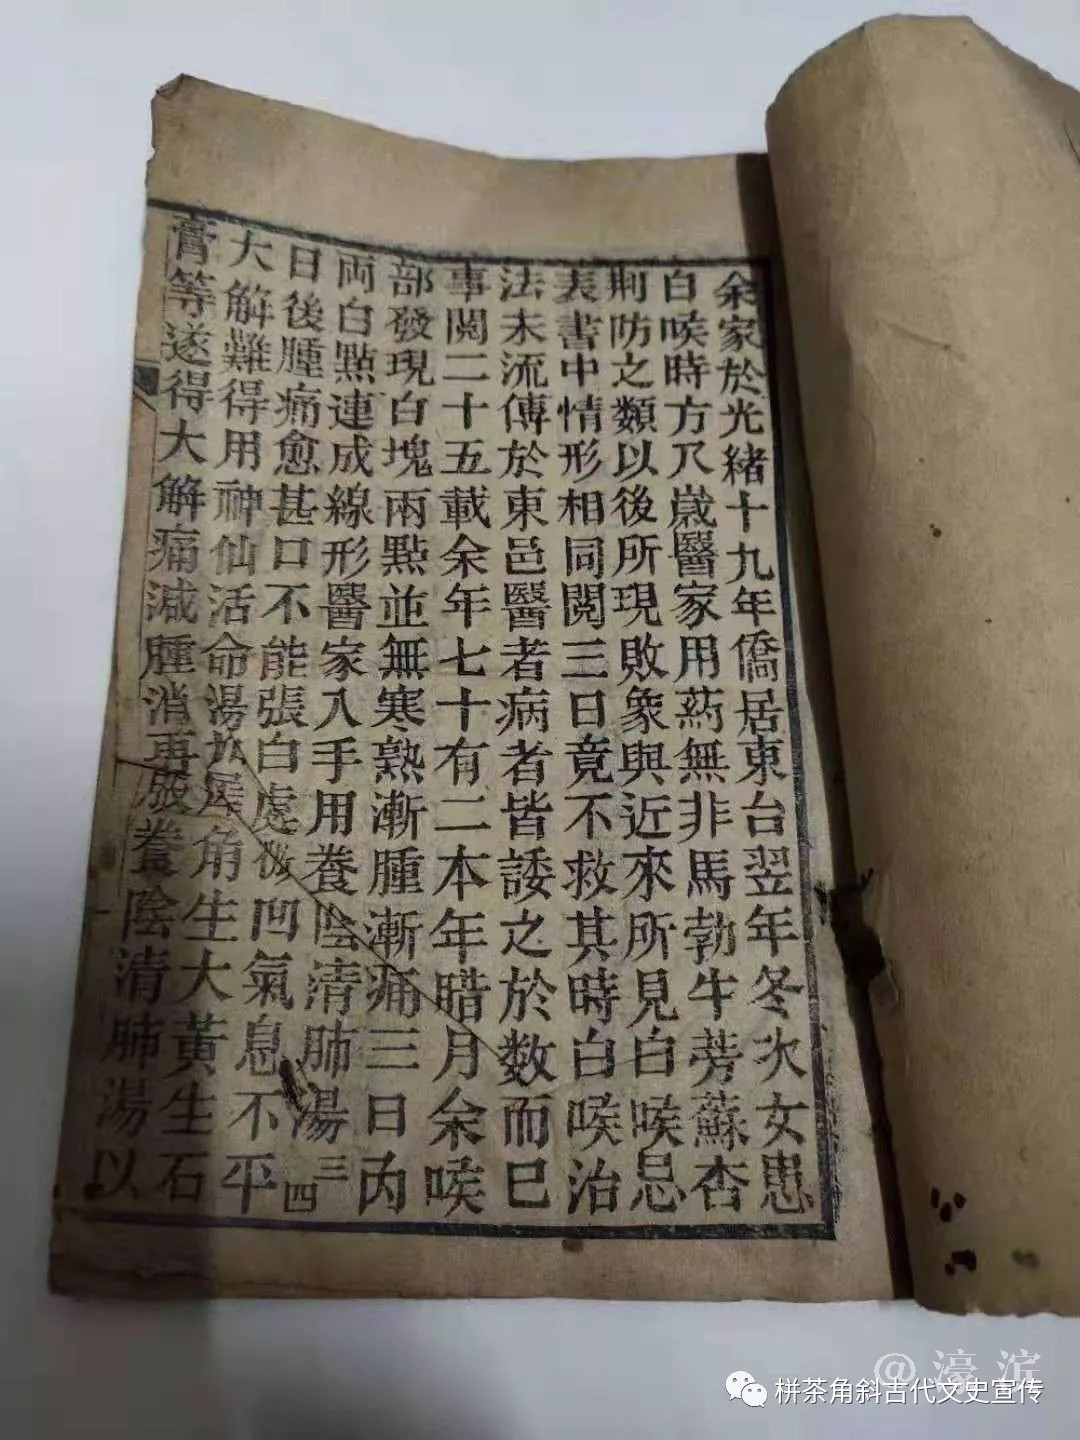 余家於光緒十九年僑居東台翌年冬次女患
白喉時方八歲醫家用葯無非馬勃牛蒡蘇杏
荆防之類以後所現敗象與近來所見白喉忌
表書中情形相同閱三日竟不救其時白喉治
法未流傳於東邑醫者病者皆諉之於数而已
事閱二十五載余年七十有二本年腊月余喉
部發現白塊兩點並無寒熟漸腫漸痛三日内
両白點連成線形醫家入手用養陰清肺湯三四
日後腫痛愈甚口不能張白處极凹氣息不平
大解難得用神仙活命湯加犀角生大黃生石
膏等遂得大解痛減腫消再服養陰清肺湯以
@濠滨
栟茶角斜古代文史宣传